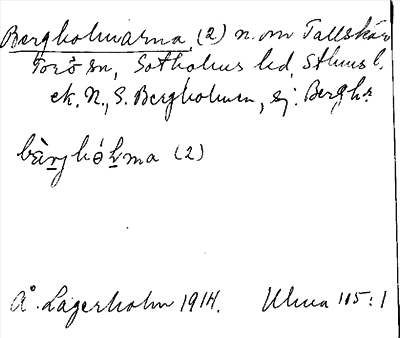 Bergholmarna, (2) n. om Tallskär
Torö sn, Sotholms hd, Sthms l.
ek. N., S. Bergholmen, sj. Bergh.
bàrghólma (2)
Å. Lagerholm 1914. Ulma 115:1